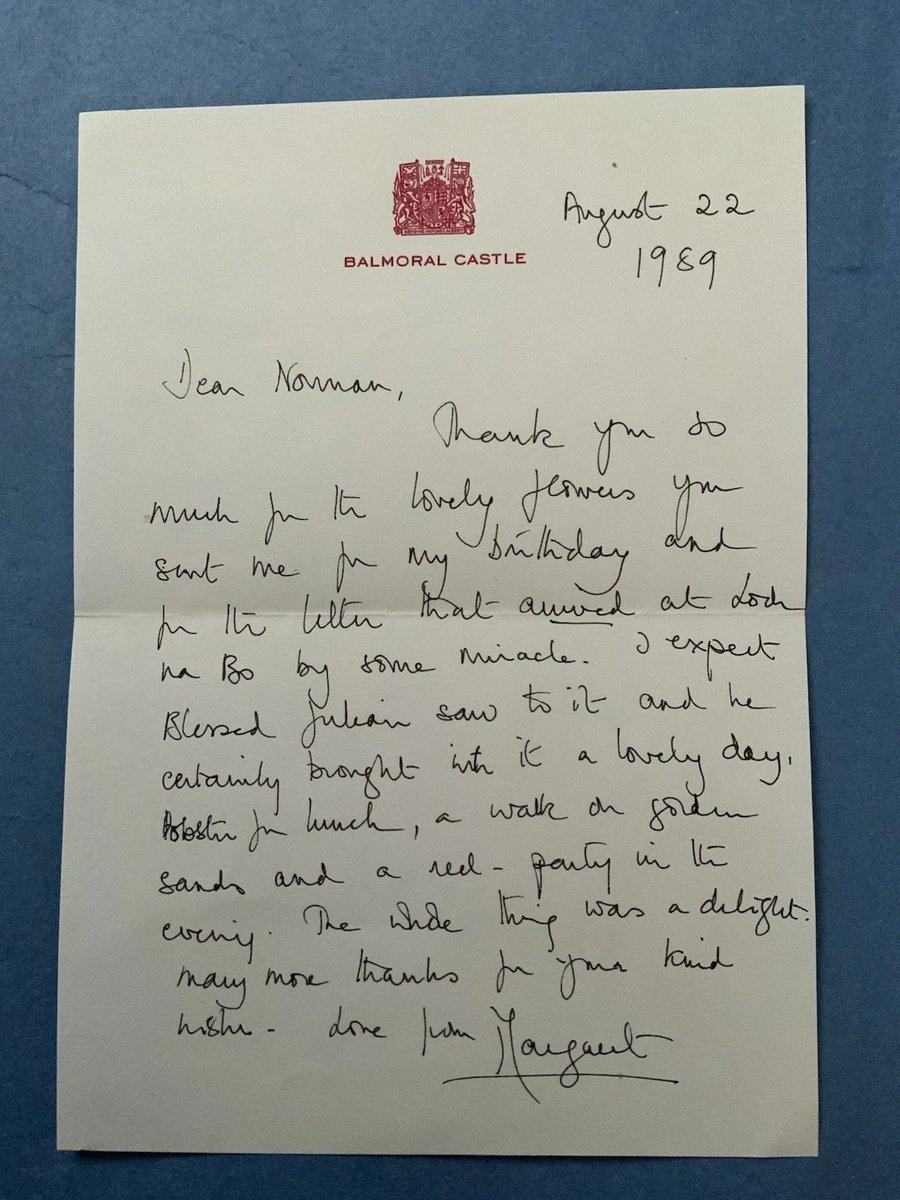 BALMORAL CASTLE
August 22
1989
Dear Norman,
Thank you so
much for the lovely flowers you
sent me for my birthday and
for the letter that arrived at Loch
na Bo by some miracle. I expect
Blessed Julian saw to it and he
certainly brought into it a lovely day.
Lobster for lunch, a walk on golden
sands and a reel-party in the
evening. The whole thing was a delight.
Many more thanks for your kind
wishes - Love from Margaret